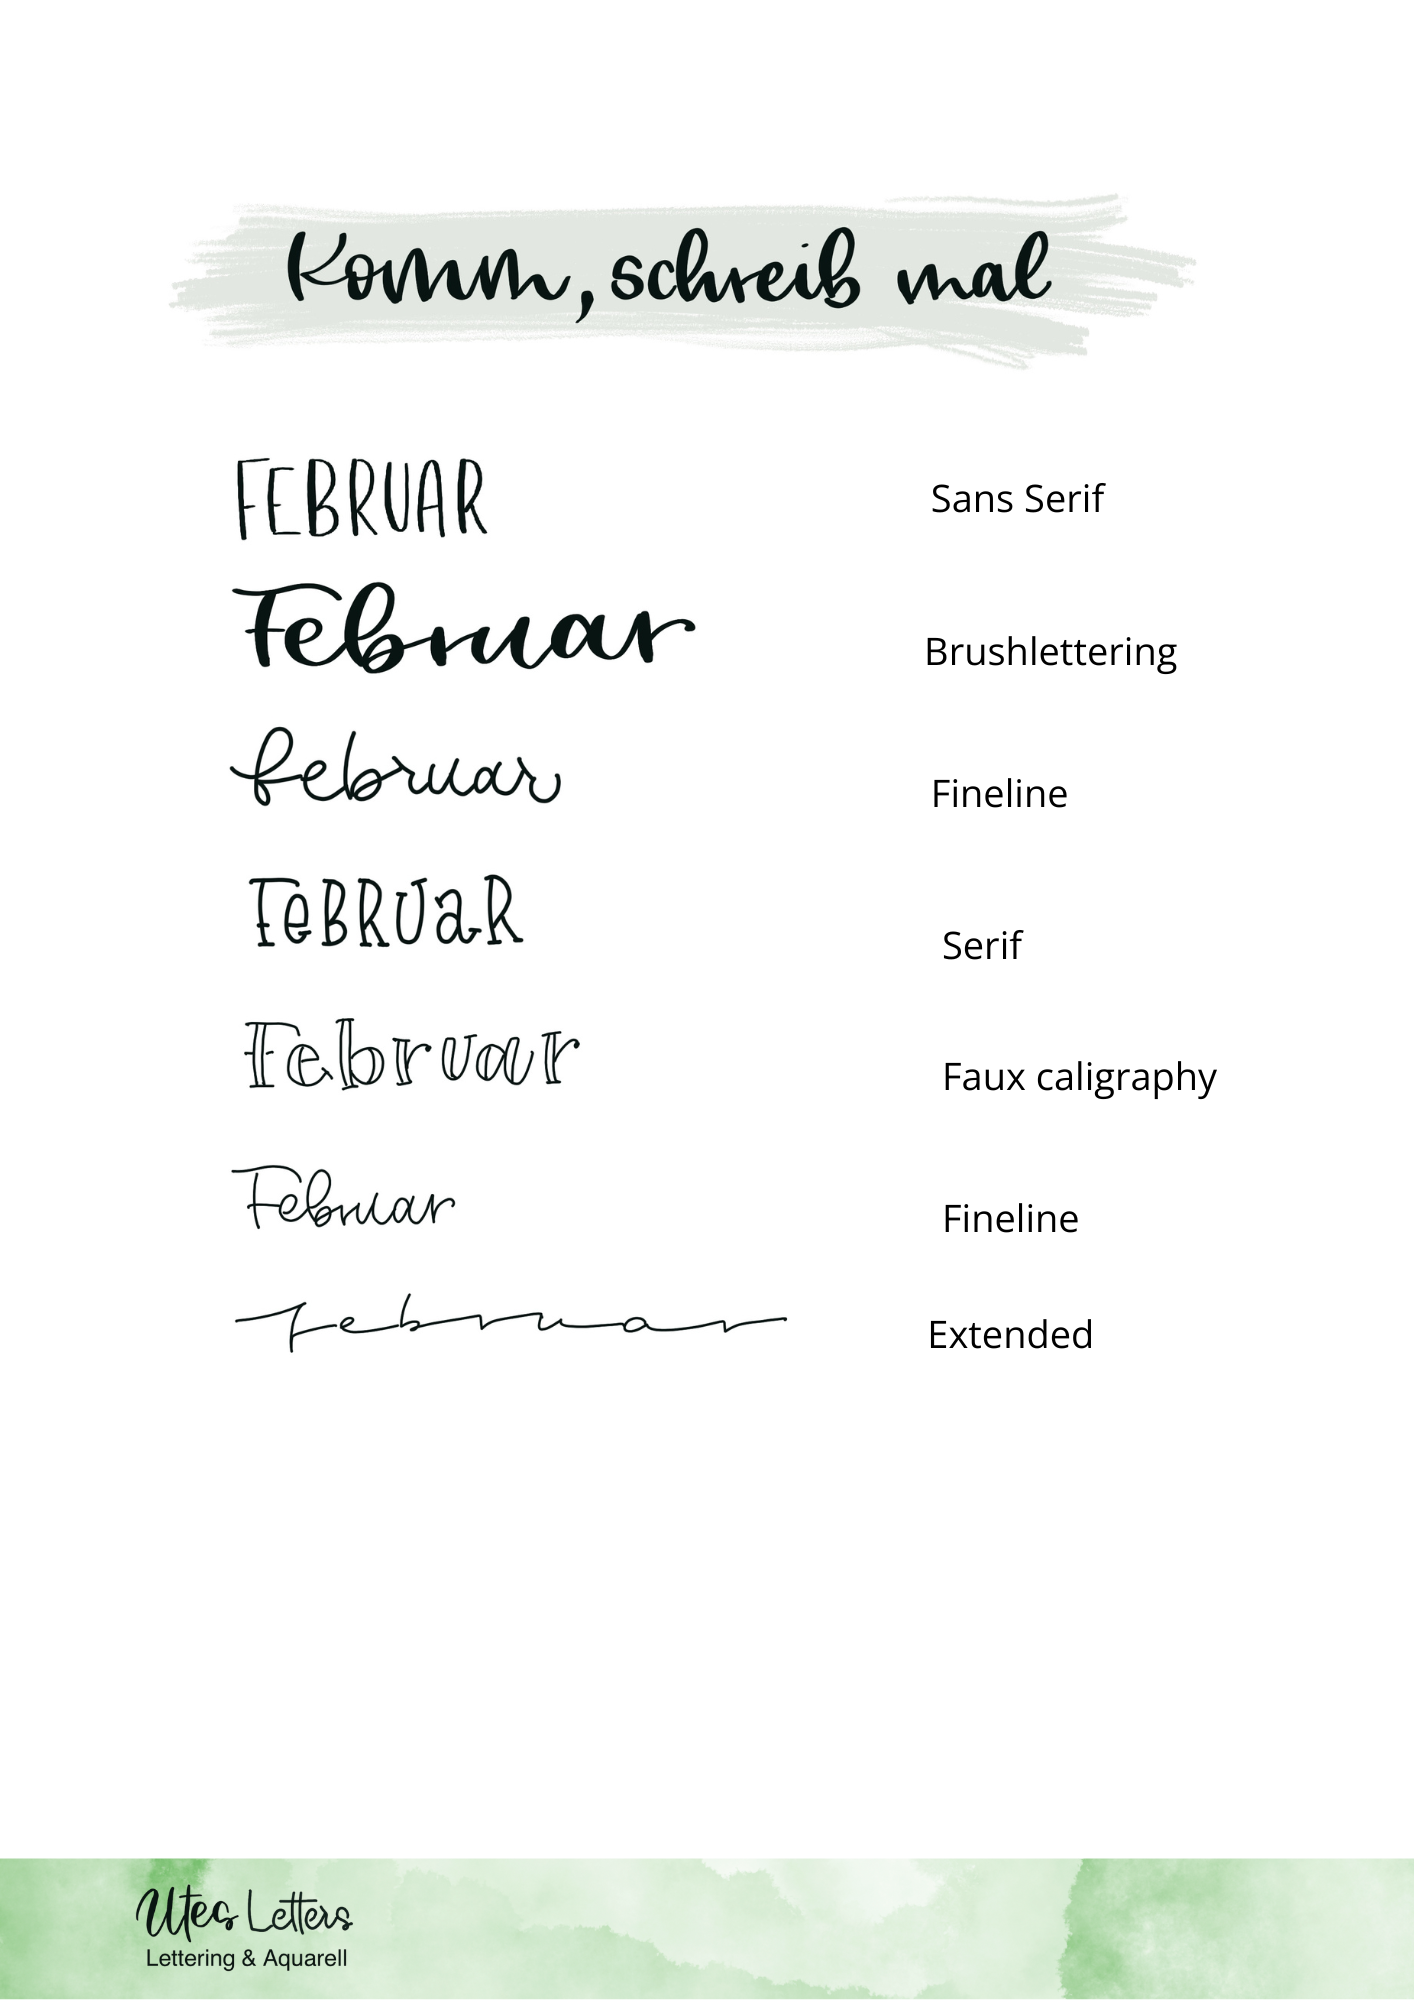 Komm, schreib mal
FEBRUAR Sans Serif
Februar Brushlettering
februar Fineline
FeBRUaR Serif
Februar Faux caligraphy
Februar Fineline
februar Extended
Utes Letters
Lettering & Aquarell